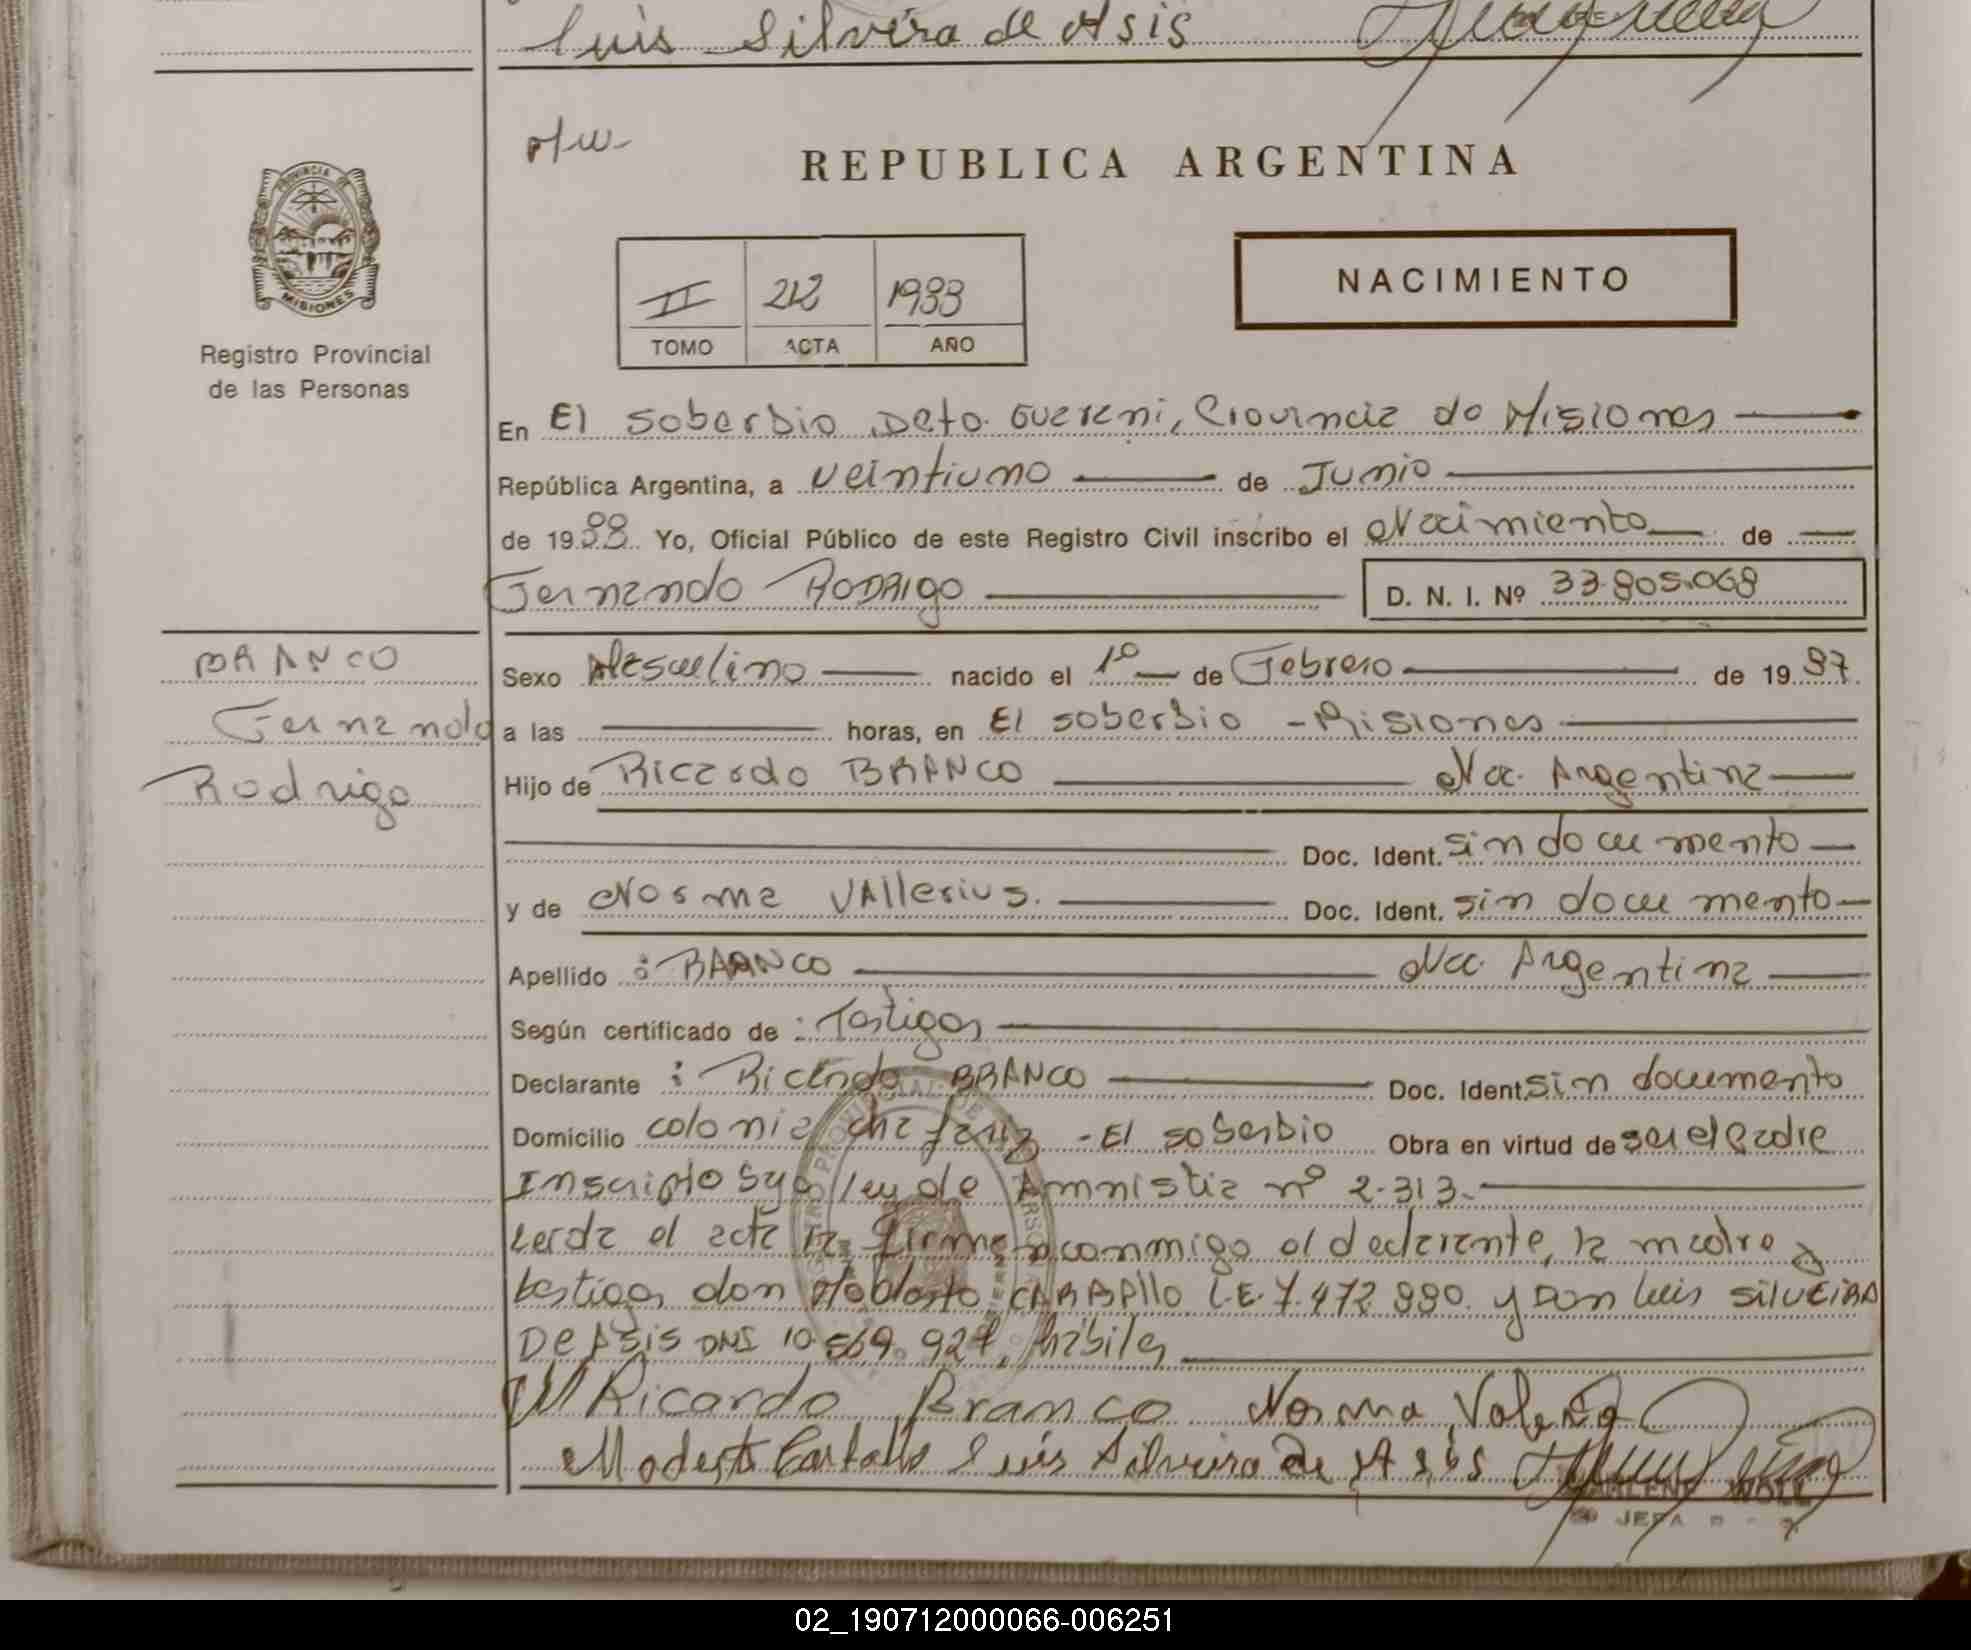 Luis Silveira de Asis
REPUBLICA ARGENTINA
PROVINCIA DE
MISIONES
Registro Provincial
de las Personas
II 212 1988
TOMO ACTA AÑO
NACIMIENTO
En El soberbio Dpto. Guarani, Provincia de Misiones
República Argentina, a veintiuno de Junio
de 1988. Yo, Oficial Público de este Registro Civil inscribo el Nacimiento de
Fernando RODRIgo D. N. I. Nº 33.805.068
BRANCO
Fernando
Rodrigo
Sexo Masculino nacido el 1º de Febrero de 1987.
a las horas, en El soberbio - Misiones
Hijo de Ricardo BRANCO Nac. Argentina
Doc. Ident. sin documento
y de Norma VAllerius. Doc. Ident. sin documento
Apellido : BRANCO Nac. Argentina
Según certificado de : Testigos
Declarante : Ricardo BRANCO Doc. Ident. sin documento
Domicilio colonia chafariz - El soberbio Obra en virtud de ser el padre
Inscripto s/ ley de Amnistia nº 2.313.
Leida el acta la firman conmigo el declarante, la madre y
testigos don Modesto CARBAllo L.E. 7.472.880. y Don Luis SILVEIRA
DE ASis DNI 10.569.927, habiles
Ricardo Branco Norma
Modesto Carballo Luis Silveira de Asis
JEFA
02_190712000066-006251